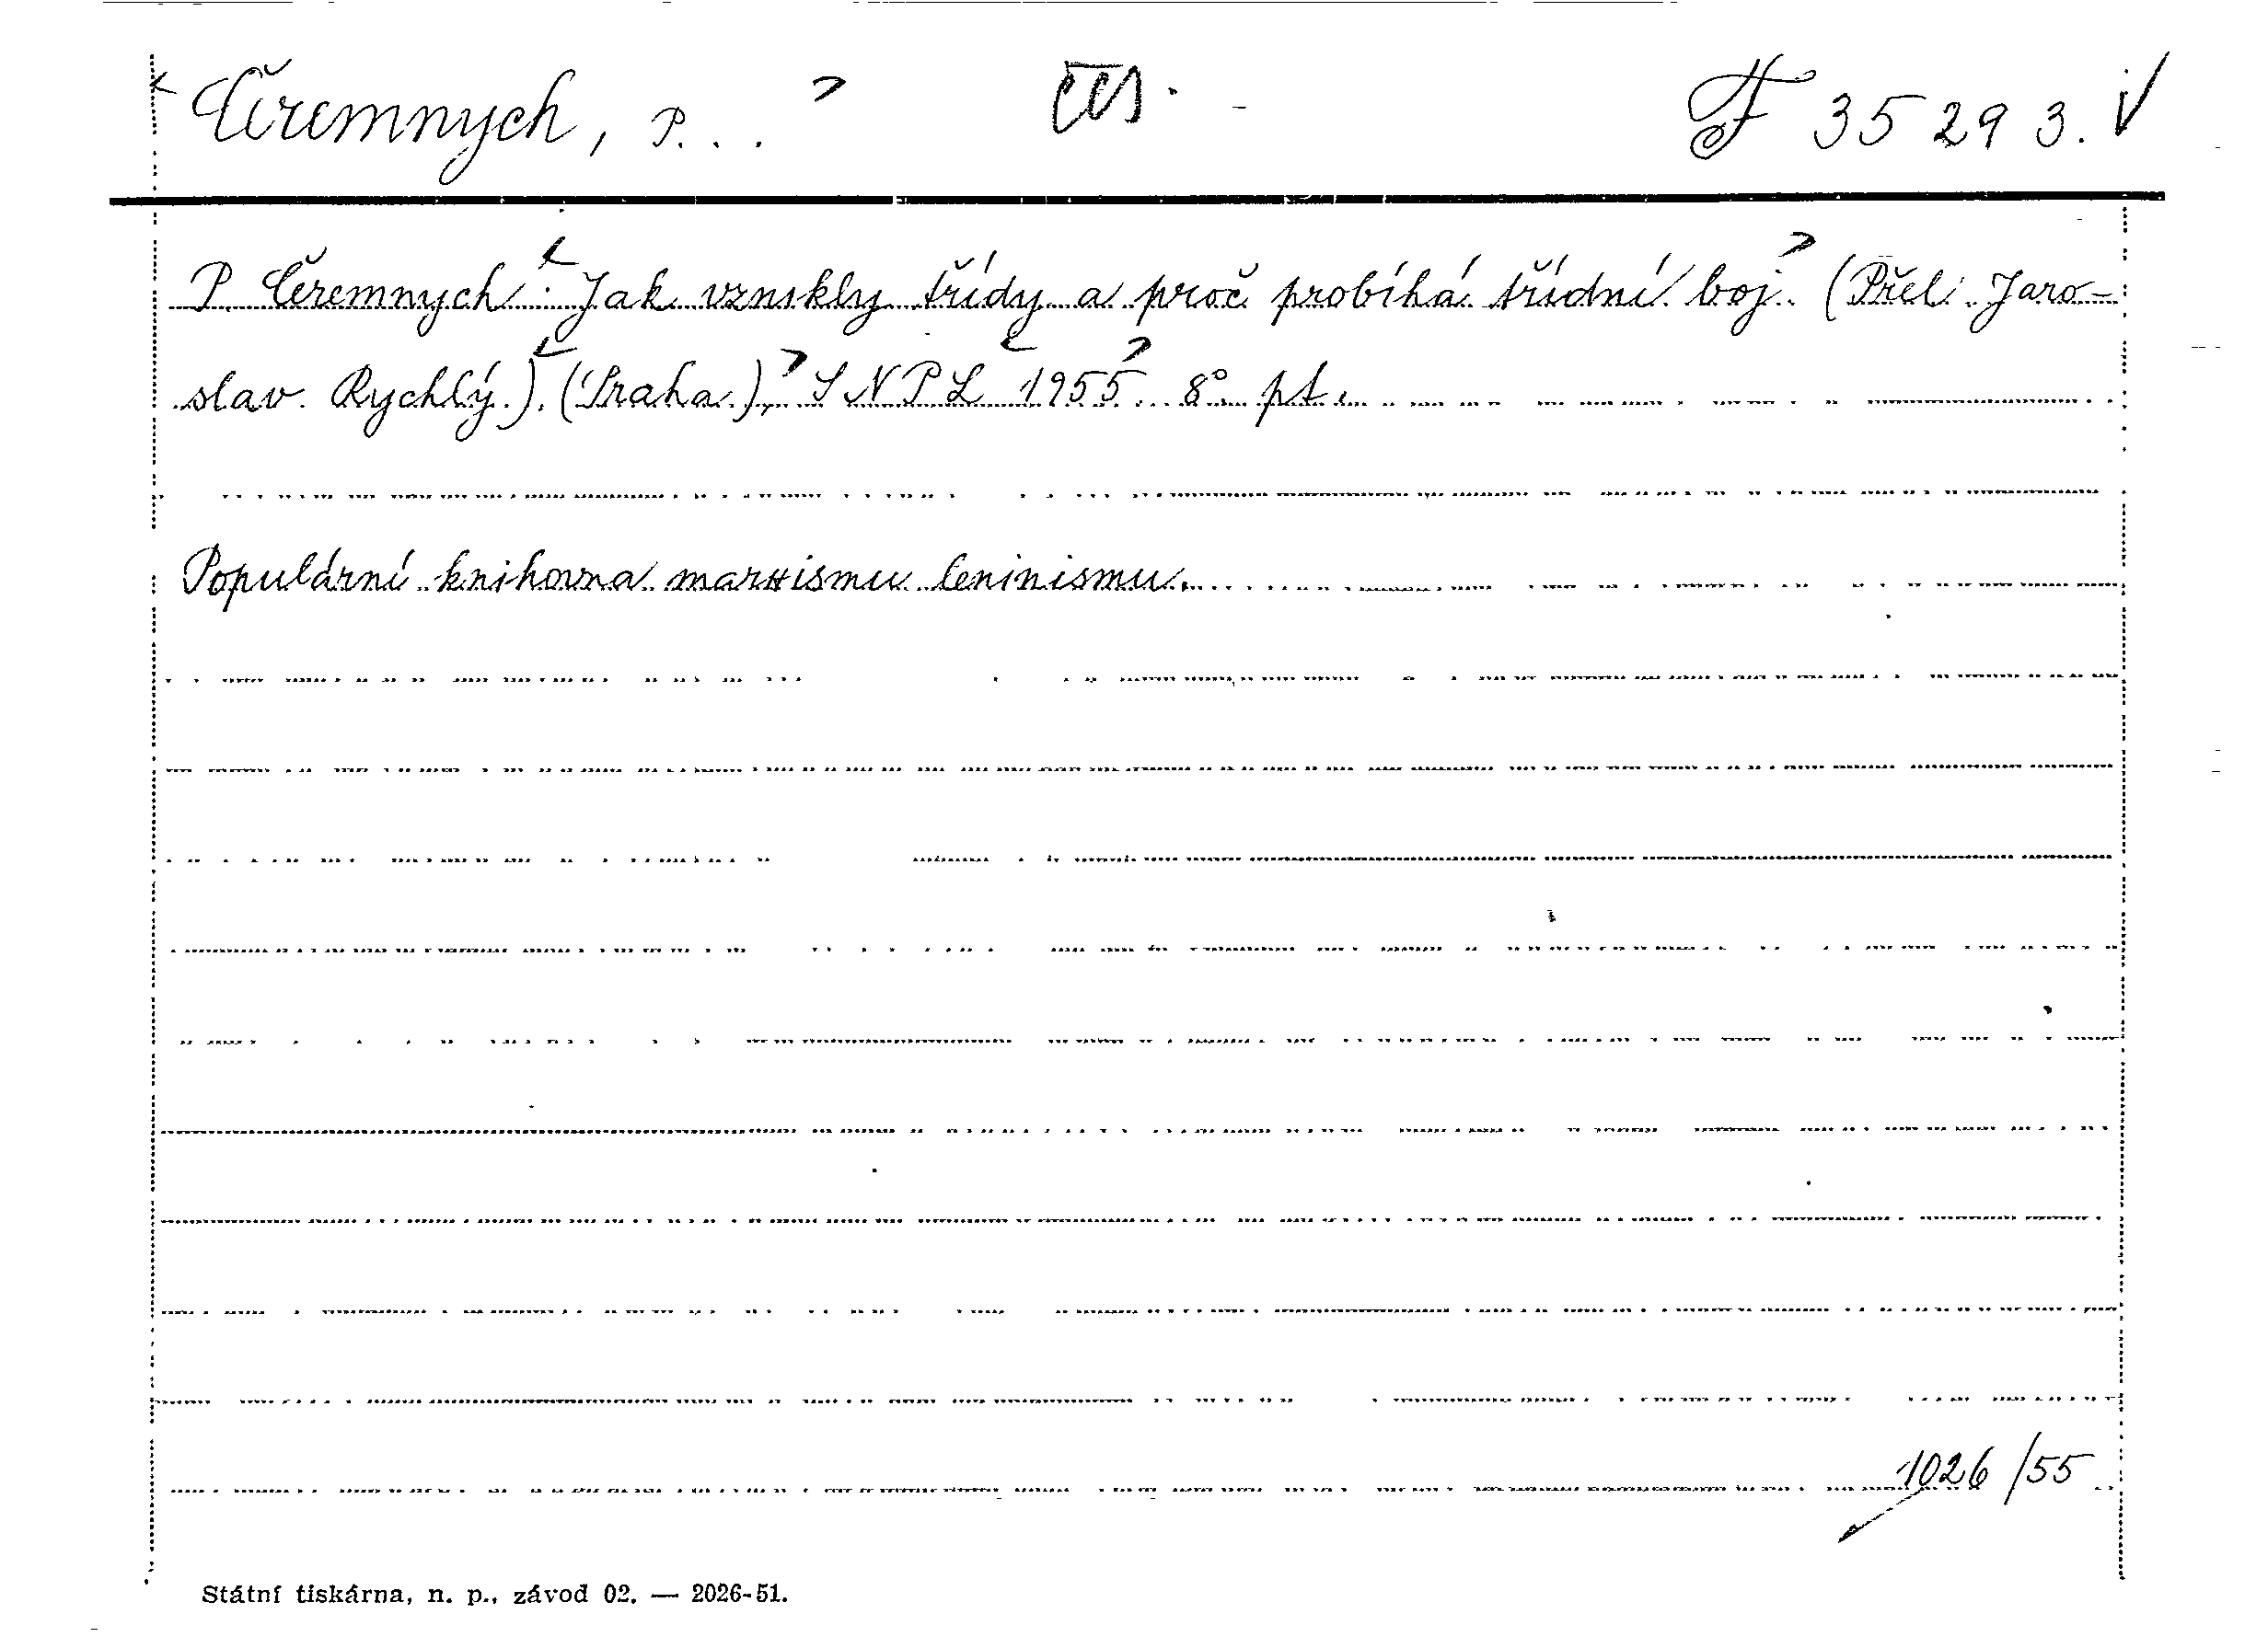 Čeremnych, P. . . čes. F 35293.
P. Čeremnych: Jak vznikly třídy a proč probíhá třídní boj. (Přel. Jaro-
slav Rychlý.) (Praha), SNPL 1955. 8°. pt.
Populární knihovna marxismu leninismu.
1026/55
Státní tiskárna, n. p., závod 02. — 2026-51.